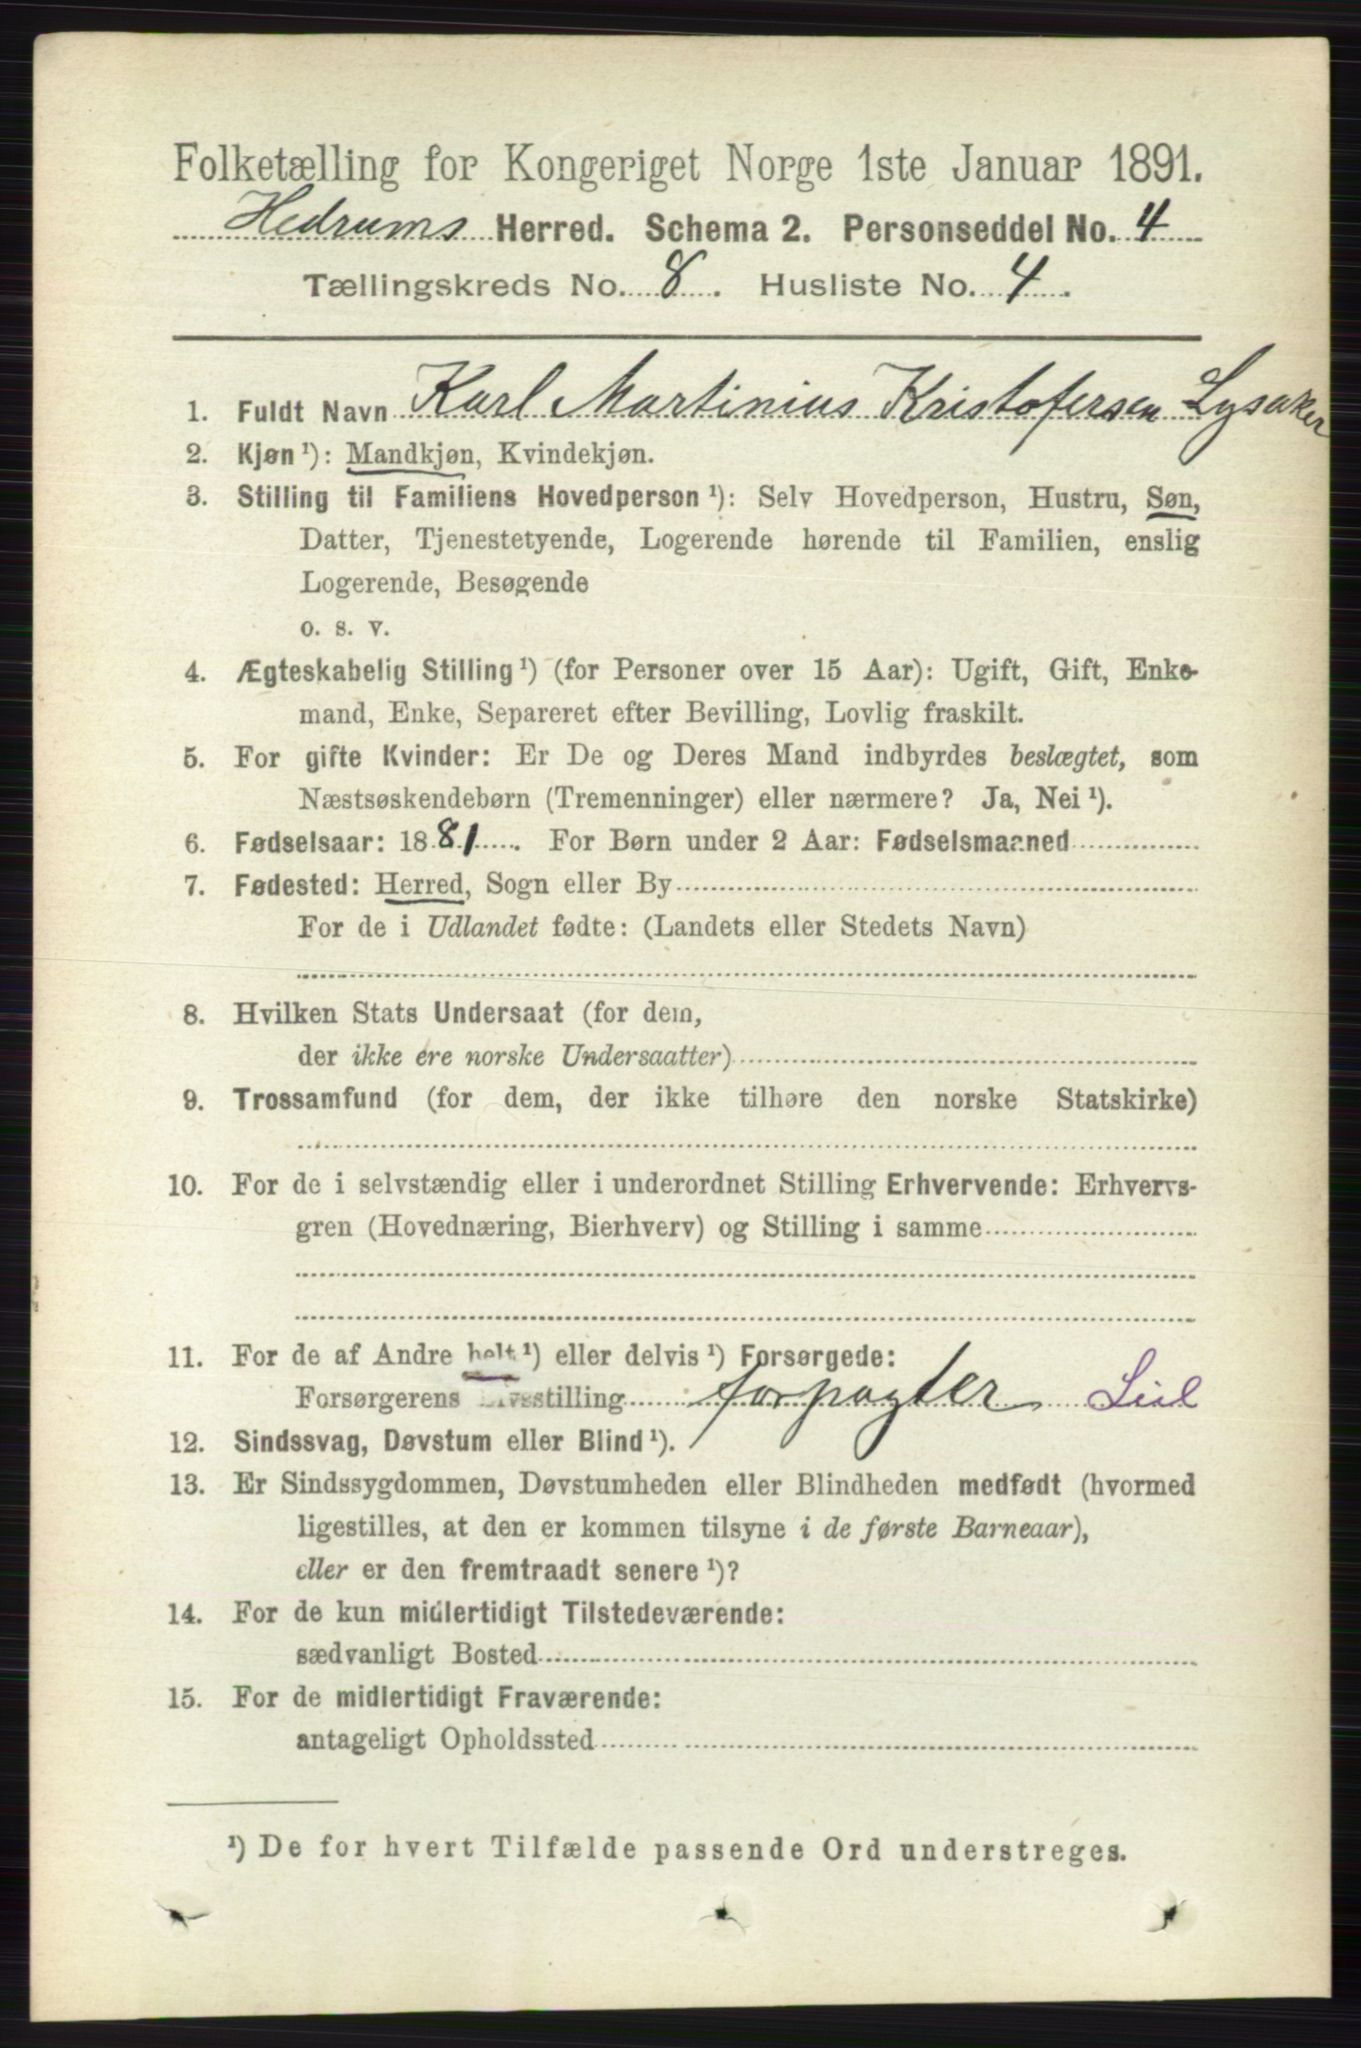 Folketælling for Kongeriget Norge 1ste Januar 1891.
Hedrums Herred. Schema 2. Personseddel No. 4
Tællingskreds No. 8. Husliste No. 4.
1. Fuldt Navn Karl Martinius Kristofersen Lysaker
2. Kjøn ¹): Mandkjøn, Kvindekjøn.
3. Stilling til Familiens Hovedperson ¹): Selv Hovedperson, Hustru, Søn,
Datter, Tjenestetyende, Logerende hørende til Familien, enslig
Logerende, Besøgende
o. s. v.
4. Ægteskabelig Stilling ¹) (for Personer over 15 Aar): Ugift, Gift, Enke-
mand, Enke, Separeret efter Bevilling, Lovlig fraskilt.
5. For gifte Kvinder: Er De og Deres Mand indbyrdes beslægtet, som
Næstsøskendebørn (Tremenninger) eller nærmere? Ja, Nei ¹).
6. Fødselsaar: 1881. For Børn under 2 Aar: Fødselsmaaned
7. Fødested: Herred, Sogn eller By
For de i Udlandet fødte: (Landets eller Stedets Navn)
8. Hvilken Stats Undersaat (for dem,
der ikke ere norske Undersaatter)
9. Trossamfund (for dem, der ikke tilhøre den norske Statskirke)
10. For de i selvstændig eller i underordnet Stilling Erhvervende: Erhvervs-
gren (Hovednæring, Bierhverv) og Stilling i samme
11. For de af Andre helt ¹) eller delvis ¹) Forsørgede:
Forsørgerens Livsstilling forpagter
12. Sindssvag, Døvstum eller Blind ¹).
13. Er Sindssygdommen, Døvstumheden eller Blindheden medfødt (hvormed
ligestilles, at den er kommen tilsyne i de første Barneaar),
eller er den fremtraadt senere ¹)?
14. For de kun midlertidigt Tilstedeværende:
sædvanligt Bosted
15. For de midlertidigt Fraværende:
antageligt Opholdssted
¹) De for hvert Tilfælde passende Ord understreges.